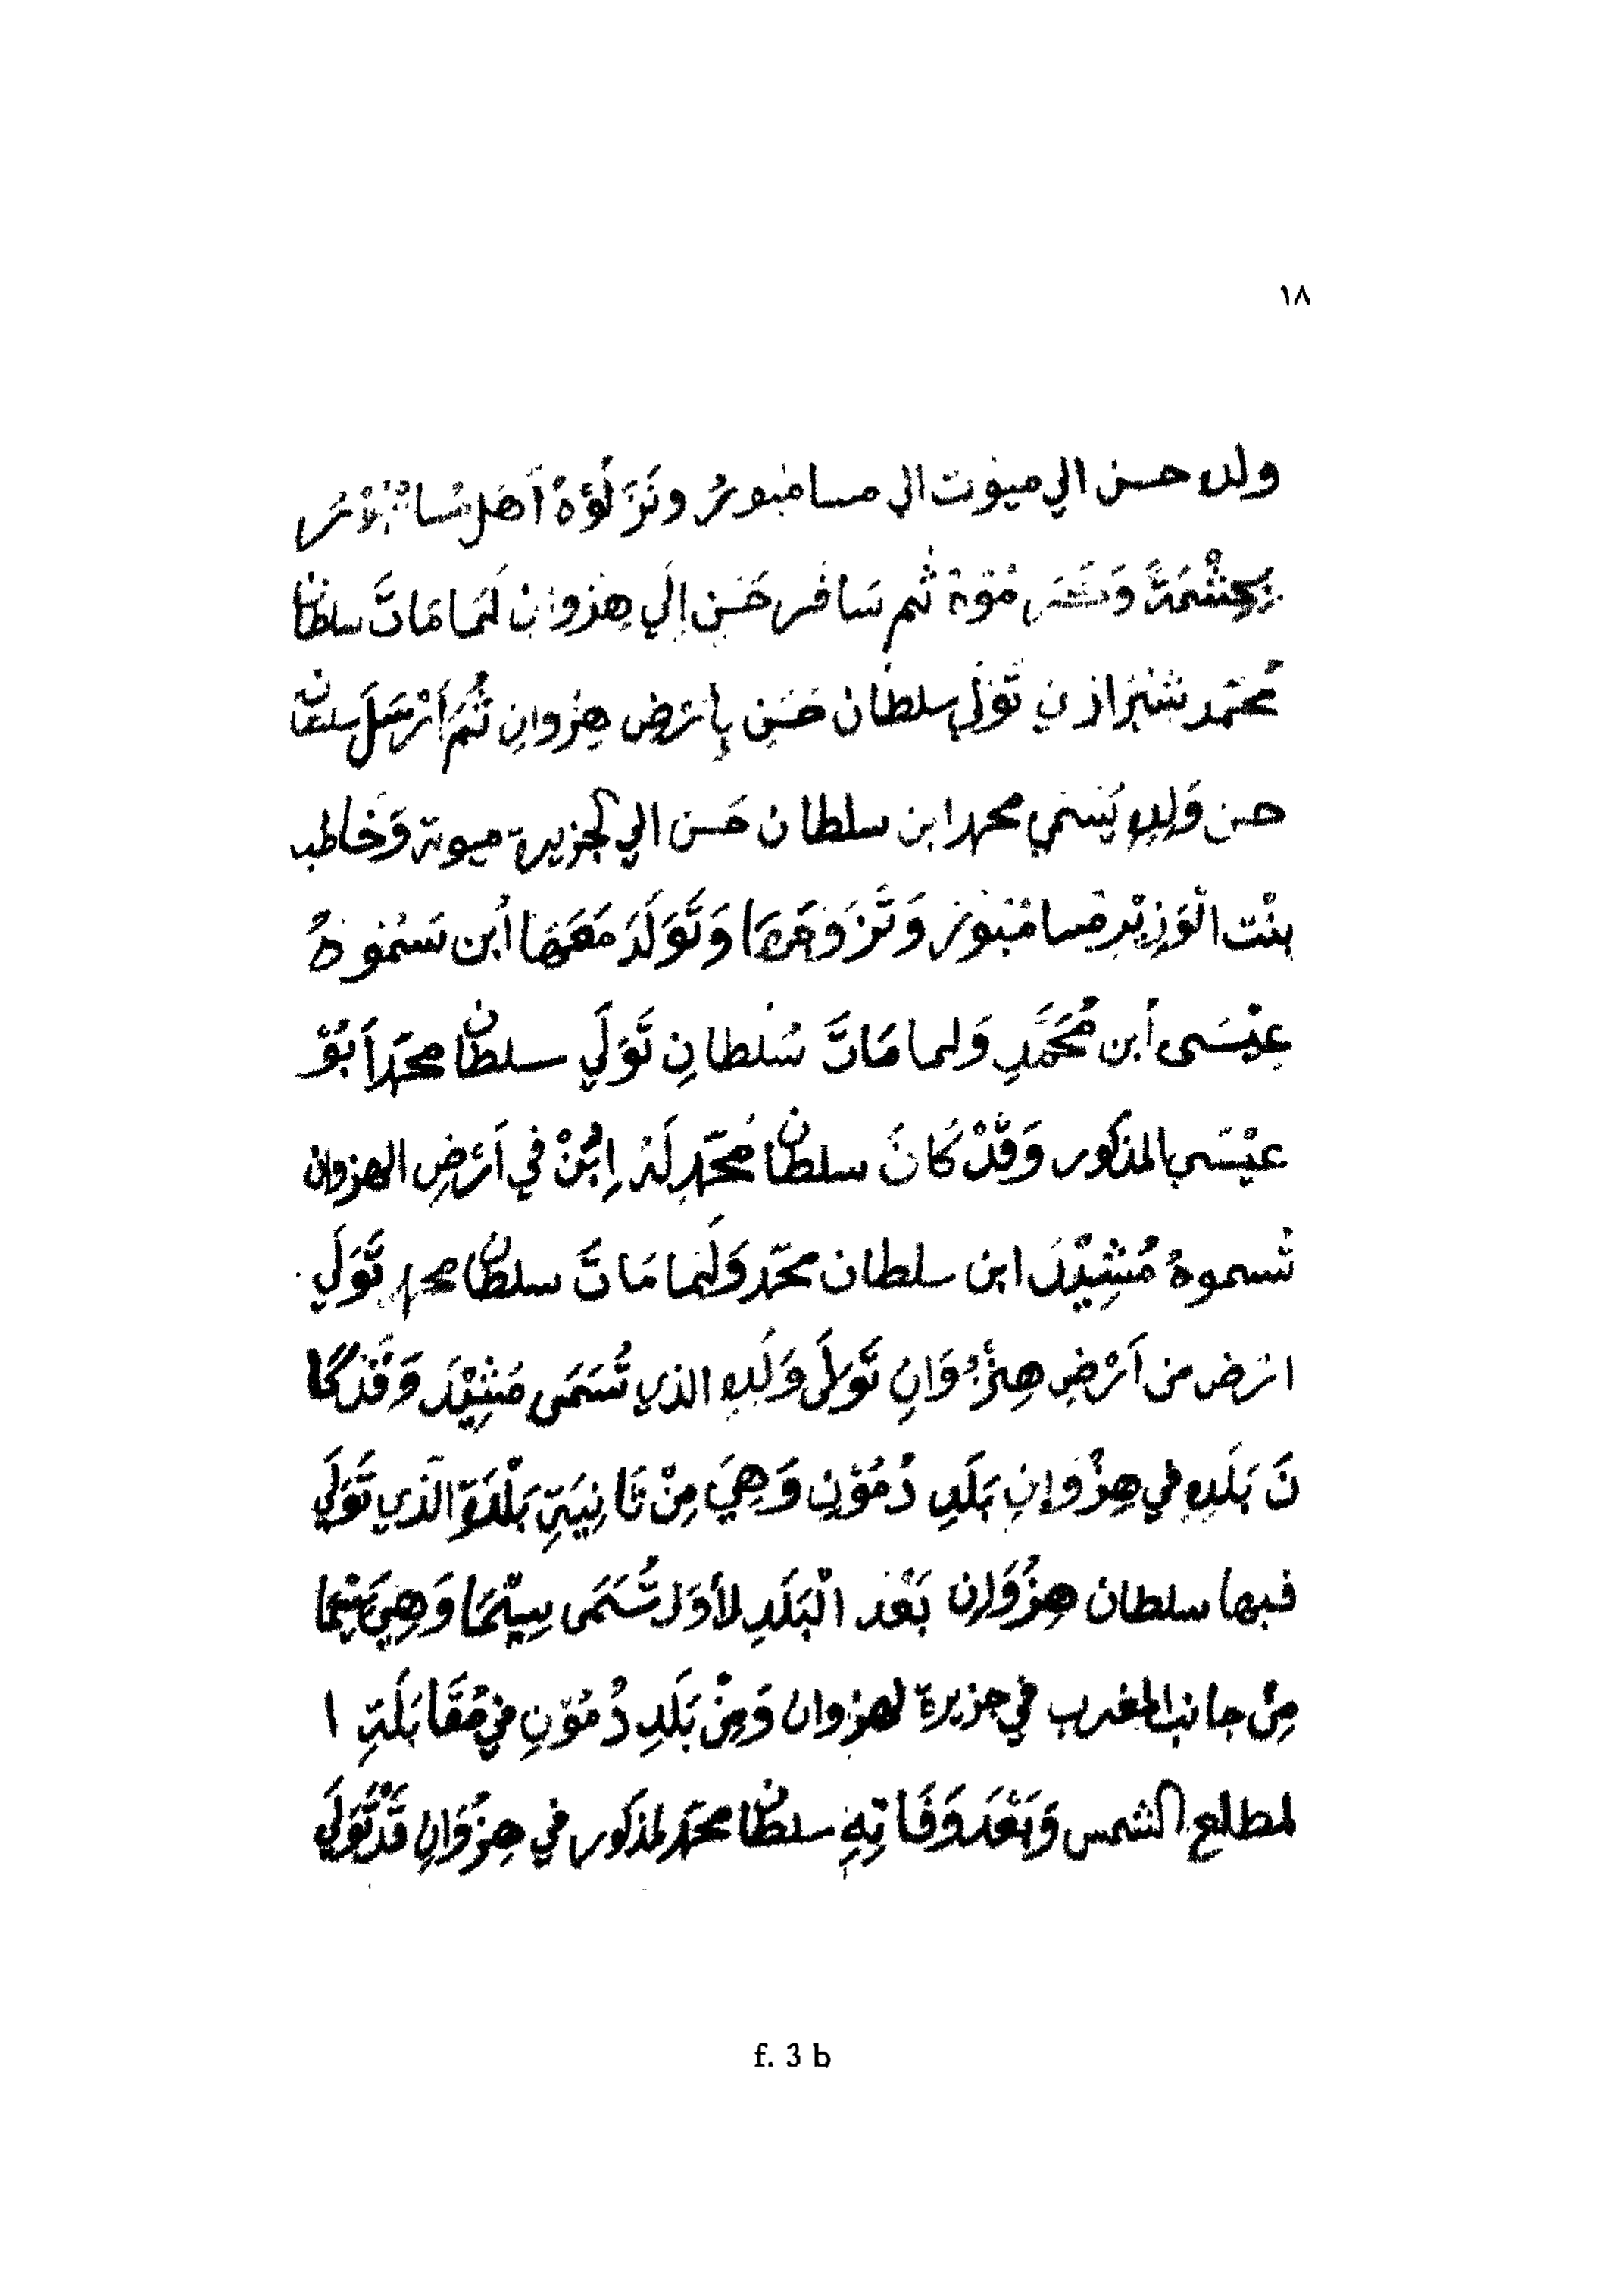 ١٨
ولد حسن الي ميوت الي مسامنبوئر ونَزَلُوْهُ اَهْل
ثم سَافر حَسَن اِلَي هِنْزوان لَمَا مَاتَ سلطان
مُحَمّد شيرازي تَوَلي سلطان حَسَن بِارَض هِنْزوانِ ثُمَّ اَرْسَلَ سلطان
حسن وَلدِهِ يُسَمي محمد ابن سلطان حَسن الي الجزيرة ميوتة وَخاطب
بنْت الوَزِيْر مسامنْبوَر وَتَزَوجَهَا وَتَوَلَدَ مَعَهَا اُبن تَسَمُوهُ
عِيْسَى اُبن مُحَمَّدِ وَلما مَاتَ سُلطانِ تَوَلَي سلطان محمد اَبُوْ
عيْسَى بالمذكور وَقَدْ كَانَ سلطان مُحَمّد لَهُ اِبْنْ في اَرْضِ الهنزوان
تسموهُ مُشِيْدَلَ ابن سلطان محمّد وَلَمَا مَاتَ سلطان محمد تَوَلَي
ارَض من اَرْضِ هِنْزُوَانِ تَوَلَى وَلَدِهِ الذي تُسَمَى مَشِيْدَلَ وَقَدْ كَا
نَ بَلَدِهِ في هِنْزُوَانِ بَلَدِ دُمُوْنِ وَهِيَ مِنْ ثَانِيَةِ بَلْدَةِ الَّذي تَوَلَي
فيها سلطان هِنْزُوَان بَعْد الْبَلَدِ لاُوَل تُسَمَى سِيْمَا وَهِيَ سِيْمَا
مِنْ جانب المغرب في جزيرة لهنزوان وَمِنْ بَلَدِ دُمُوْنِ في مُقَابَلَةِ ا
لمطلع الشمس وَبَعْدَ وَفَاتِهِ سلطان محمّد لمذكور في هِنْزُوَانِ قَدْ تَوَلَي
f. 3 b